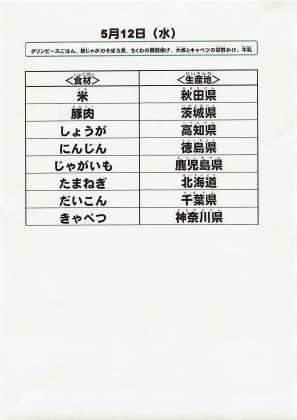 5月12日（水）
グリンピースごはん、新じゃがのそぼろ煮、ちくわの磯部揚げ、大根とキャベツの甘酢かけ、牛乳
＜食材＞ ＜生産地＞
米 秋田県
豚肉 茨城県
しょうが 高知県
にんじん 徳島県
じゃがいも 鹿児島県
たまねぎ 北海道
だいこん 千葉県
きゃべつ 神奈川県